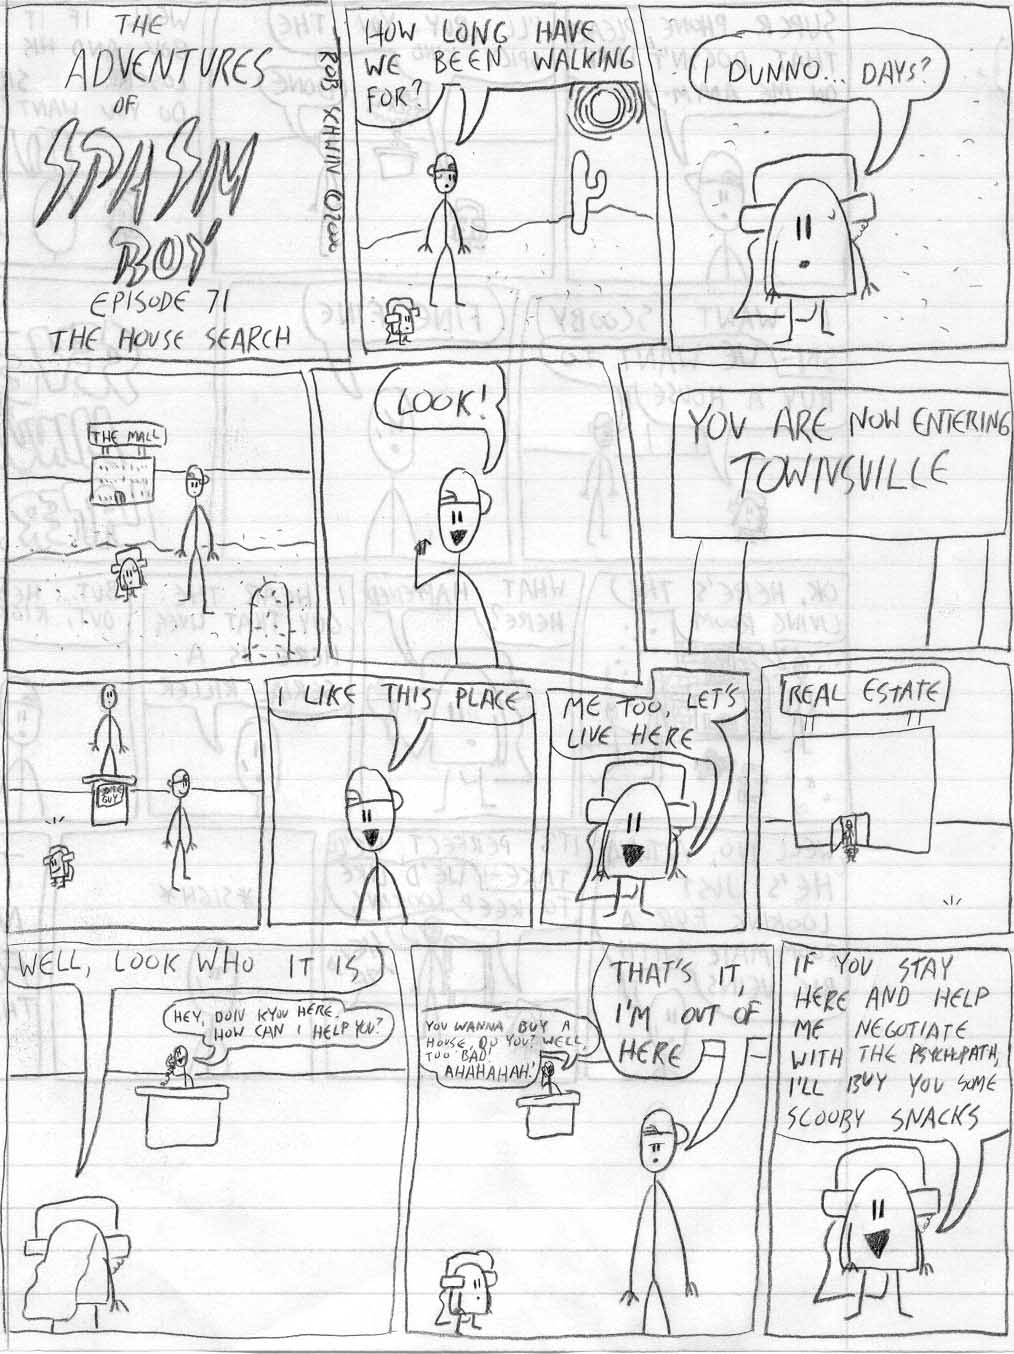 THE
ADVENTURES
OF
SPASM
BOY
EPISODE 71
THE HOUSE SEARCH
ROB SCHWIN ©2000
HOW LONG HAVE
WE BEEN WALKING
FOR?
I DUNNO... DAYS?
THE MALL
LOOK!
YOU ARE NOW ENTERING
TOWNSVILLE
SOME
GUY
I LIKE THIS PLACE
ME TOO, LET'S
LIVE HERE
REAL ESTATE
WELL, LOOK WHO IT IS
HEY, DON KYOU HERE.
HOW CAN I HELP YOU?
YOU WANNA BUY A
HOUSE, DO YOU? WELL,
TOO BAD!
AHAHAHAH!
THAT'S IT,
I'M OUT OF
HERE
IF YOU STAY
HERE AND HELP
ME NEGOTIATE
WITH THE PSYCHOPATH,
I'LL BUY YOU SOME
SCOOBY SNACKS